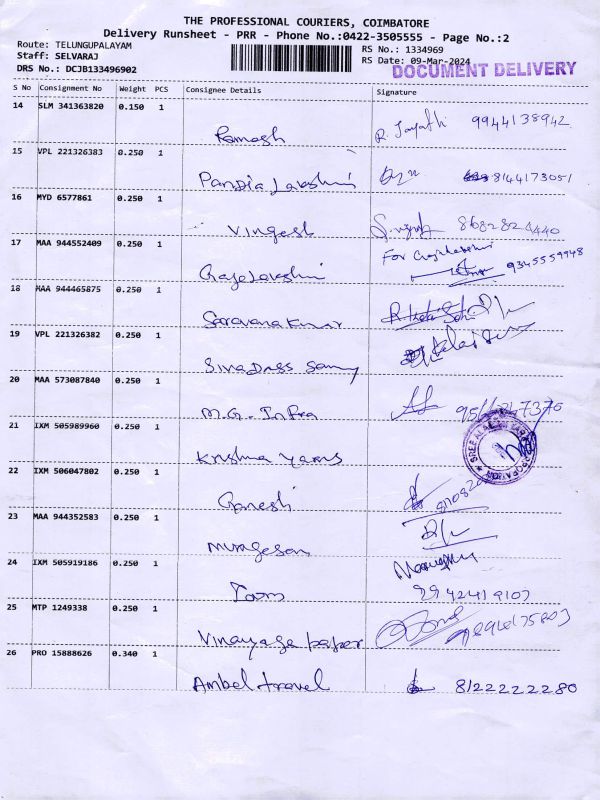 THE PROFESSIONAL COURIERS, COIMBATORE
Delivery Runsheet - PRR - Phone No.:0422-3505555 - Page No.:2
Route: TELUNGUPALAYAM
Staff: SELVARAJ
DRS No.: DCJB133496902
RS No.: 1334969
RS Date: 09-Mar-2024
DOCUMENT DELIVERY
S No Consignment No Weight PCS Consignee Details Signature
14 SLM 341363820 0.150 1 Ramesh R. Jayathi 9944138942
15 VPL 221326383 0.250 1 Pandia Lakshmi 8144173051
16 MYD 6577861 0.250 1 Vingesh 8682824440
17 MAA 944552409 0.250 1 Rajelakshmi For 9345559948
18 MAA 944465875 0.250 1 Saravanakumar
19 VPL 221326382 0.250 1 Sivadass Samy
20 MAA 573087840 0.250 1 M.G. Infra
21 IXM 505989960 0.250 1 Krishna yarns
22 IXM 506047802 0.250 1 Ganesh
23 MAA 944352583 0.250 1 Murugesan
24 IXM 505919186 0.250 1
25 MTP 1249338 0.250 1 Vinayaga paper
26 PRO 15888626 0.340 1 Ambel travel 8122222280